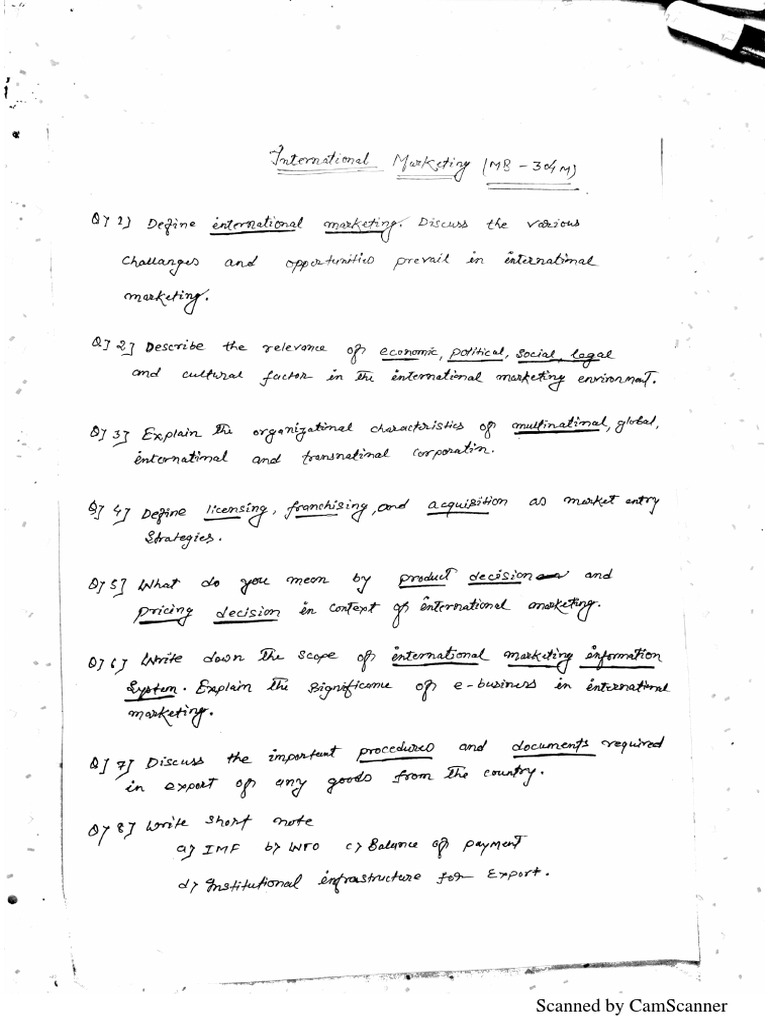 International Marketing (MB - 304M)
Q7 1] Define international marketing. Discuss the various
challanges and opportunities prevail in international
marketing.
Q] 2] Describe the relevance of economic, political, social, legal
and cultural factor in the international marketing environment.
Q] 3] Explain the organizatinal characteristics of multinatinal, global,
international and transnatinal corporatin.
Q] 4] Define licensing, franchising, and acquisition as market entry
strategies.
Q] 5] What do you mean by product decision and
pricing decision in context of international marketing.
Q] 6] Write down the scope of international marketing information
system. Explain the significance of e-business in international
marketing.
Q] 7] Discuss the important procedures and documents required
in export of any goods from the country.
Q7 8] Write short note
a] IMF b7 WTO c7 Balance of payment
d7 Institutional infrastructure for Export.
Scanned by CamScanner